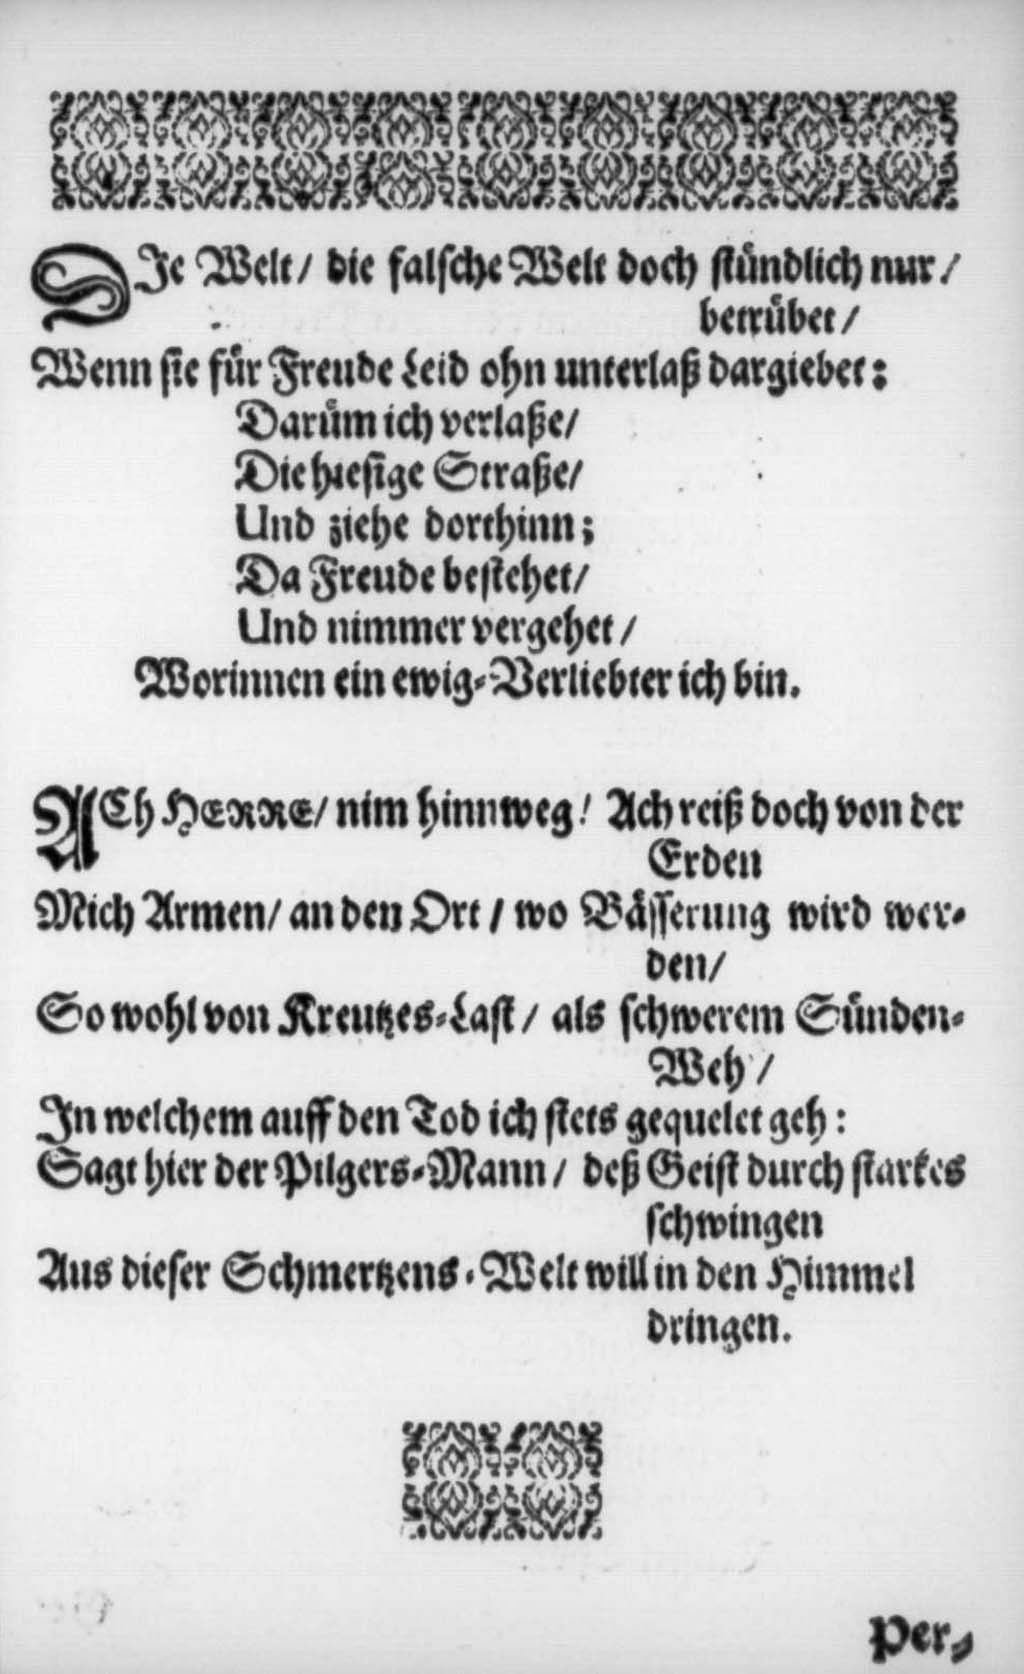 DJe Welt/ die falsche Welt doch stündlich nur/
betrübet/
Wenn sie für Freude Leid ohn unterlaß dargiebet:
Darüm ich verlaße/
Die hiesige Straße/
Und ziehe dorthinn;
Da Freude bestehet/
Und nimmer vergehet/
Worinnen ein ewig-Verliebter ich bin.
ACh HERRE/ nim hinnweg! Ach reiß doch von der
Erden
Mich Armen/ an den Ort/ wo Bässerung wird wer-
den/
So wohl von Kreutzes-Last/ als schwerem Sünden-
Weh/
Jn welchem auff den Tod ich stets gequelet geh:
Sagt hier der Pilgers-Mann/ deß Geist durch starkes
schwingen
Aus dieser Schmertzens-Welt will in den Himmel
dringen.
Per-